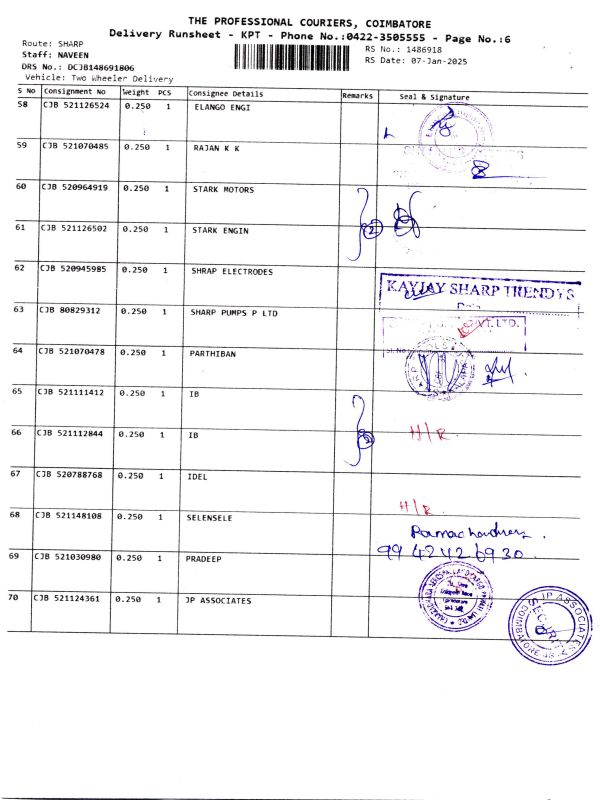 THE PROFESSIONAL COURIERS, COIMBATORE
Delivery Runsheet - KPT - Phone No.:0422-3505555 - Page No.:6
Route: SHARP
RS No.: 1486918
Staff: NAVEEN
RS Date: 07-Jan-2025
DRS No.: DCJB148691806
Vehicle: Two Wheeler Delivery
S No Consignment No Weight PCS Consignee Details Remarks Seal & Signature
58 CJB 521126524 0.250 1 ELANGO ENGI
59 CJB 521070485 0.250 1 RAJAN K K
60 CJB 520964919 0.250 1 STARK MOTORS
2
61 CJB 521126502 0.250 1 STARK ENGIN
62 CJB 520945985 0.250 1 SHRAP ELECTRODES
KAYJAY SHARP TRENDYS
63 CJB 80829312 0.250 1 SHARP PUMPS P LTD
VT. LTD.
64 CJB 521070478 0.250 1 PARTHIBAN
65 CJB 521111412 0.250 1 IB
2
66 CJB 521112844 0.250 1 IB H/R
67 CJB 520788768 0.250 1 IDEL
H/R
68 CJB 521148108 0.250 1 SELENSELE
Ramachandran
9942426930
69 CJB 521030980 0.250 1 PRADEEP
70 CJB 521124361 0.250 1 JP ASSOCIATES
JP ASSOCIATES
SECURITY